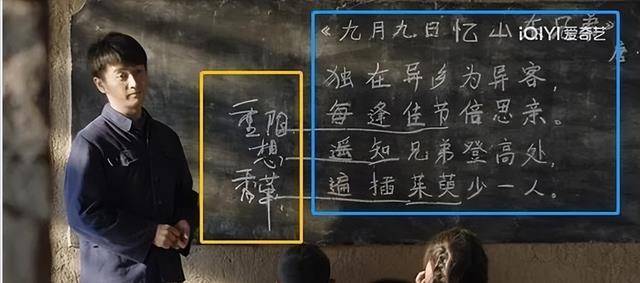 iQIYI爱奇艺
《九月九日忆山
唐
独在异乡为异客，
每逢佳节倍思亲。
遥知兄弟登高处，
遍插茱萸少一人。
重阳
想
香草